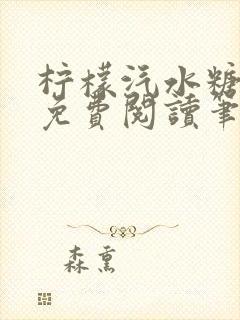 柠檬汽水糖
免費閱讀筆
森熏